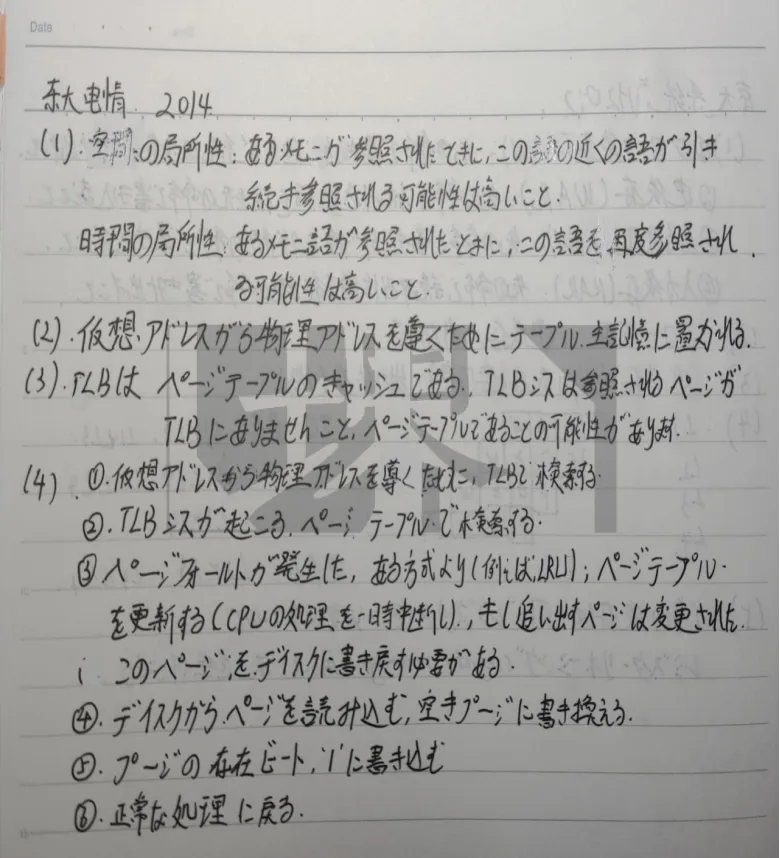 Date
东大 电情. 2014.
(1). 空間の局所性: あるメモニが参照されたときに, この語の近くの語が引き
続き参照される可能性は高いこと.
時間の局所性: あるメモニ語が参照されたときに, この語を再度参照され
る可能性は高いこと.
(2). 仮想アドレスがら物理アドレスを導くためにテーブル. 主記憶に置かれる.
(3). TLBは ページテーブルのキャッシュである. TLBシスは参照されるページが
TLBにありませんこと, ページテーブルであることの可能性があります.
(4) ①. 仮想アドレスから物理アドレスを導くために, TLBで検索する.
②. TLBシスが起こる. ページテーブルで検索する.
③ ページフォールトが発生した, ある方式より(例えばLRU); ページテーブル.
を更新する(CPUの処理を一時中断し)., もし追い出すページは変更された.
i このページをディスクに書き戻す必要がある.
④. ディスクからページを読み込む, 空きプージに書き換える.
⑤. プージの存在ビート, '1'に書き込む
⑥. 正常な処理に戻る.